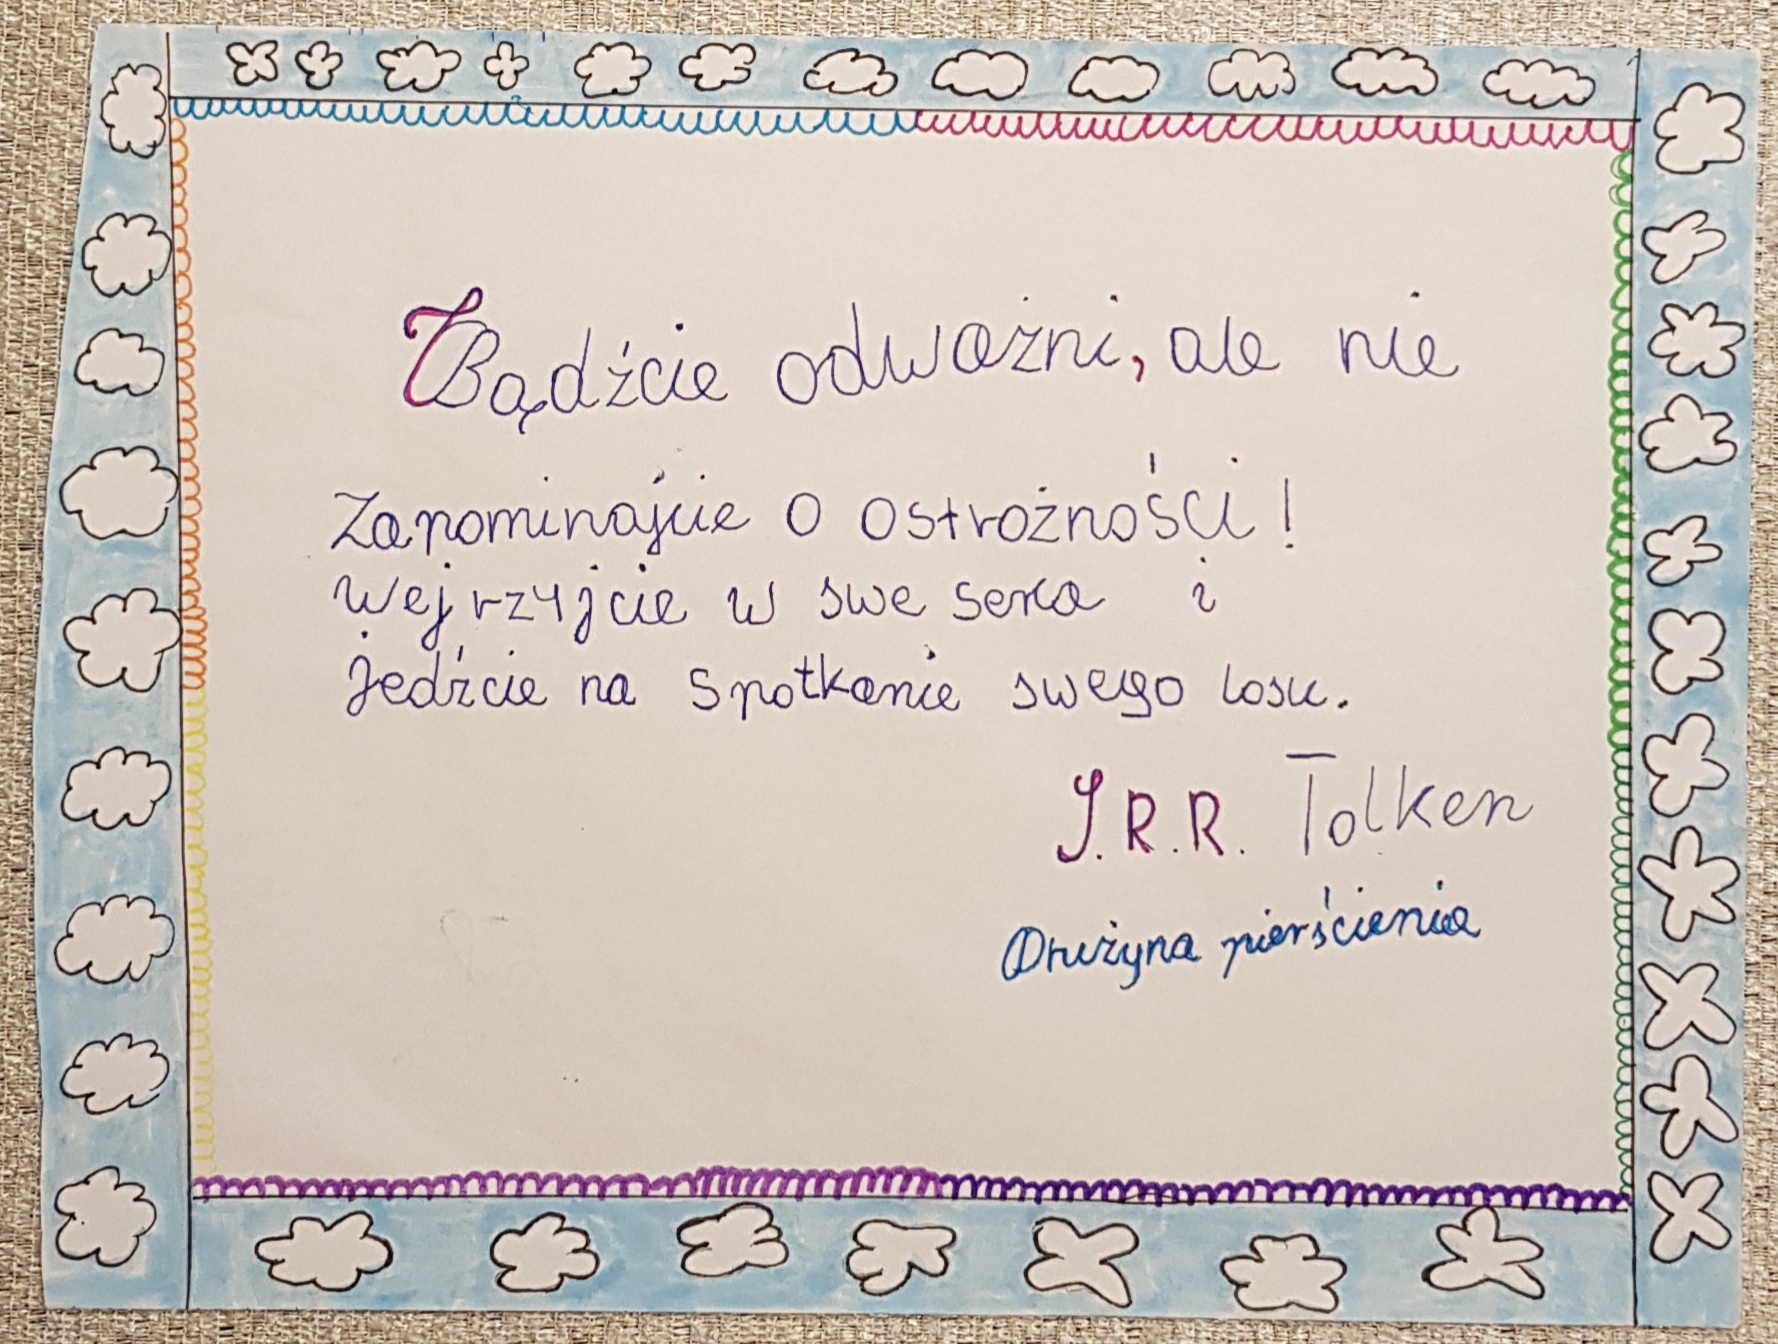 Bądźcie odważni, ale nie
zapominajcie o ostrożności!
Wejrzyjcie w swe serca i
jedźcie na spotkanie swego losu.
J.R.R. Tolken
Drużyna pierścienia